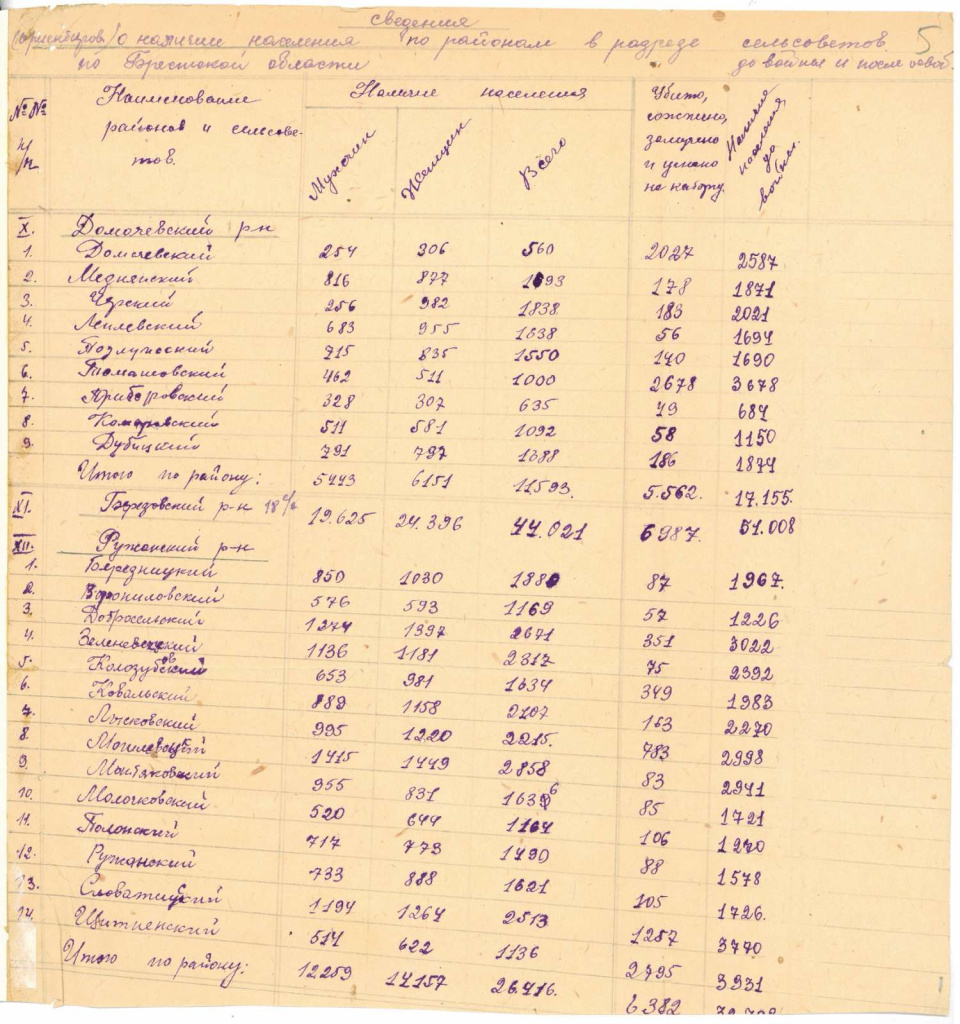 сведения 5
(ориентиров.) о наличии населения по районам в разрезе сельсоветов
по Брестской области до войны и после освоб.
№№ п/п Наименование районов и сельсоветов. Наличие населения Убито, сожжено, замучено и угнано на каторгу. Наличие населения до войны.
Мужчин Женщин Всего
X. Домачевский р-н
1. Домачевский 254 306 560 2027 2587
2. Меднянский 816 877 1693 178 1871
3. Черский 256 982 1838 183 2021
4. Леплевский 683 955 1638 56 1694
5. 715 835 1550 140 1690
6. Томашовский 462 511 1000 2678 3678
7. Приборовский 328 307 635 49 684
8. Комаровский 511 581 1092 58 1150
9. Дубицкий 791 797 1688 186 1874
Итого по району: 5443 6151 11593. 5.562. 17.155.
XI. Березовский р-н 18 с/с 19.625 24.396 44.021 6987. 51.008
XII. Ружанский р-н
1. 850 1030 1880 87 1967
2. Ворониловский 576 593 1169 57 1226
3. Добросельский 1274 1397 2671 351 3022
4. Зеленевичский 1136 1181 2317 75 2392
5. Колозубовский 653 981 1634 349 1983
6. Ковальский 889 1158 2107 163 2270
7. Лысковский 995 1220 2215. 783 2998
8. Могилевецкий 1415 1449 2858 83 2941
9. 955 831 1636 85 1721
10. Молочковский 520 644 1164 106 1270
11. Полонский 717 773 1490 88 1578
12. Ружанский 733 888 1621 105 1726.
13. Словатицкий 1194 1264 2513 1257 3770
14. Щитненский 514 622 1136 2795 3931
Итого по району: 12259 14157 26.416. 6382